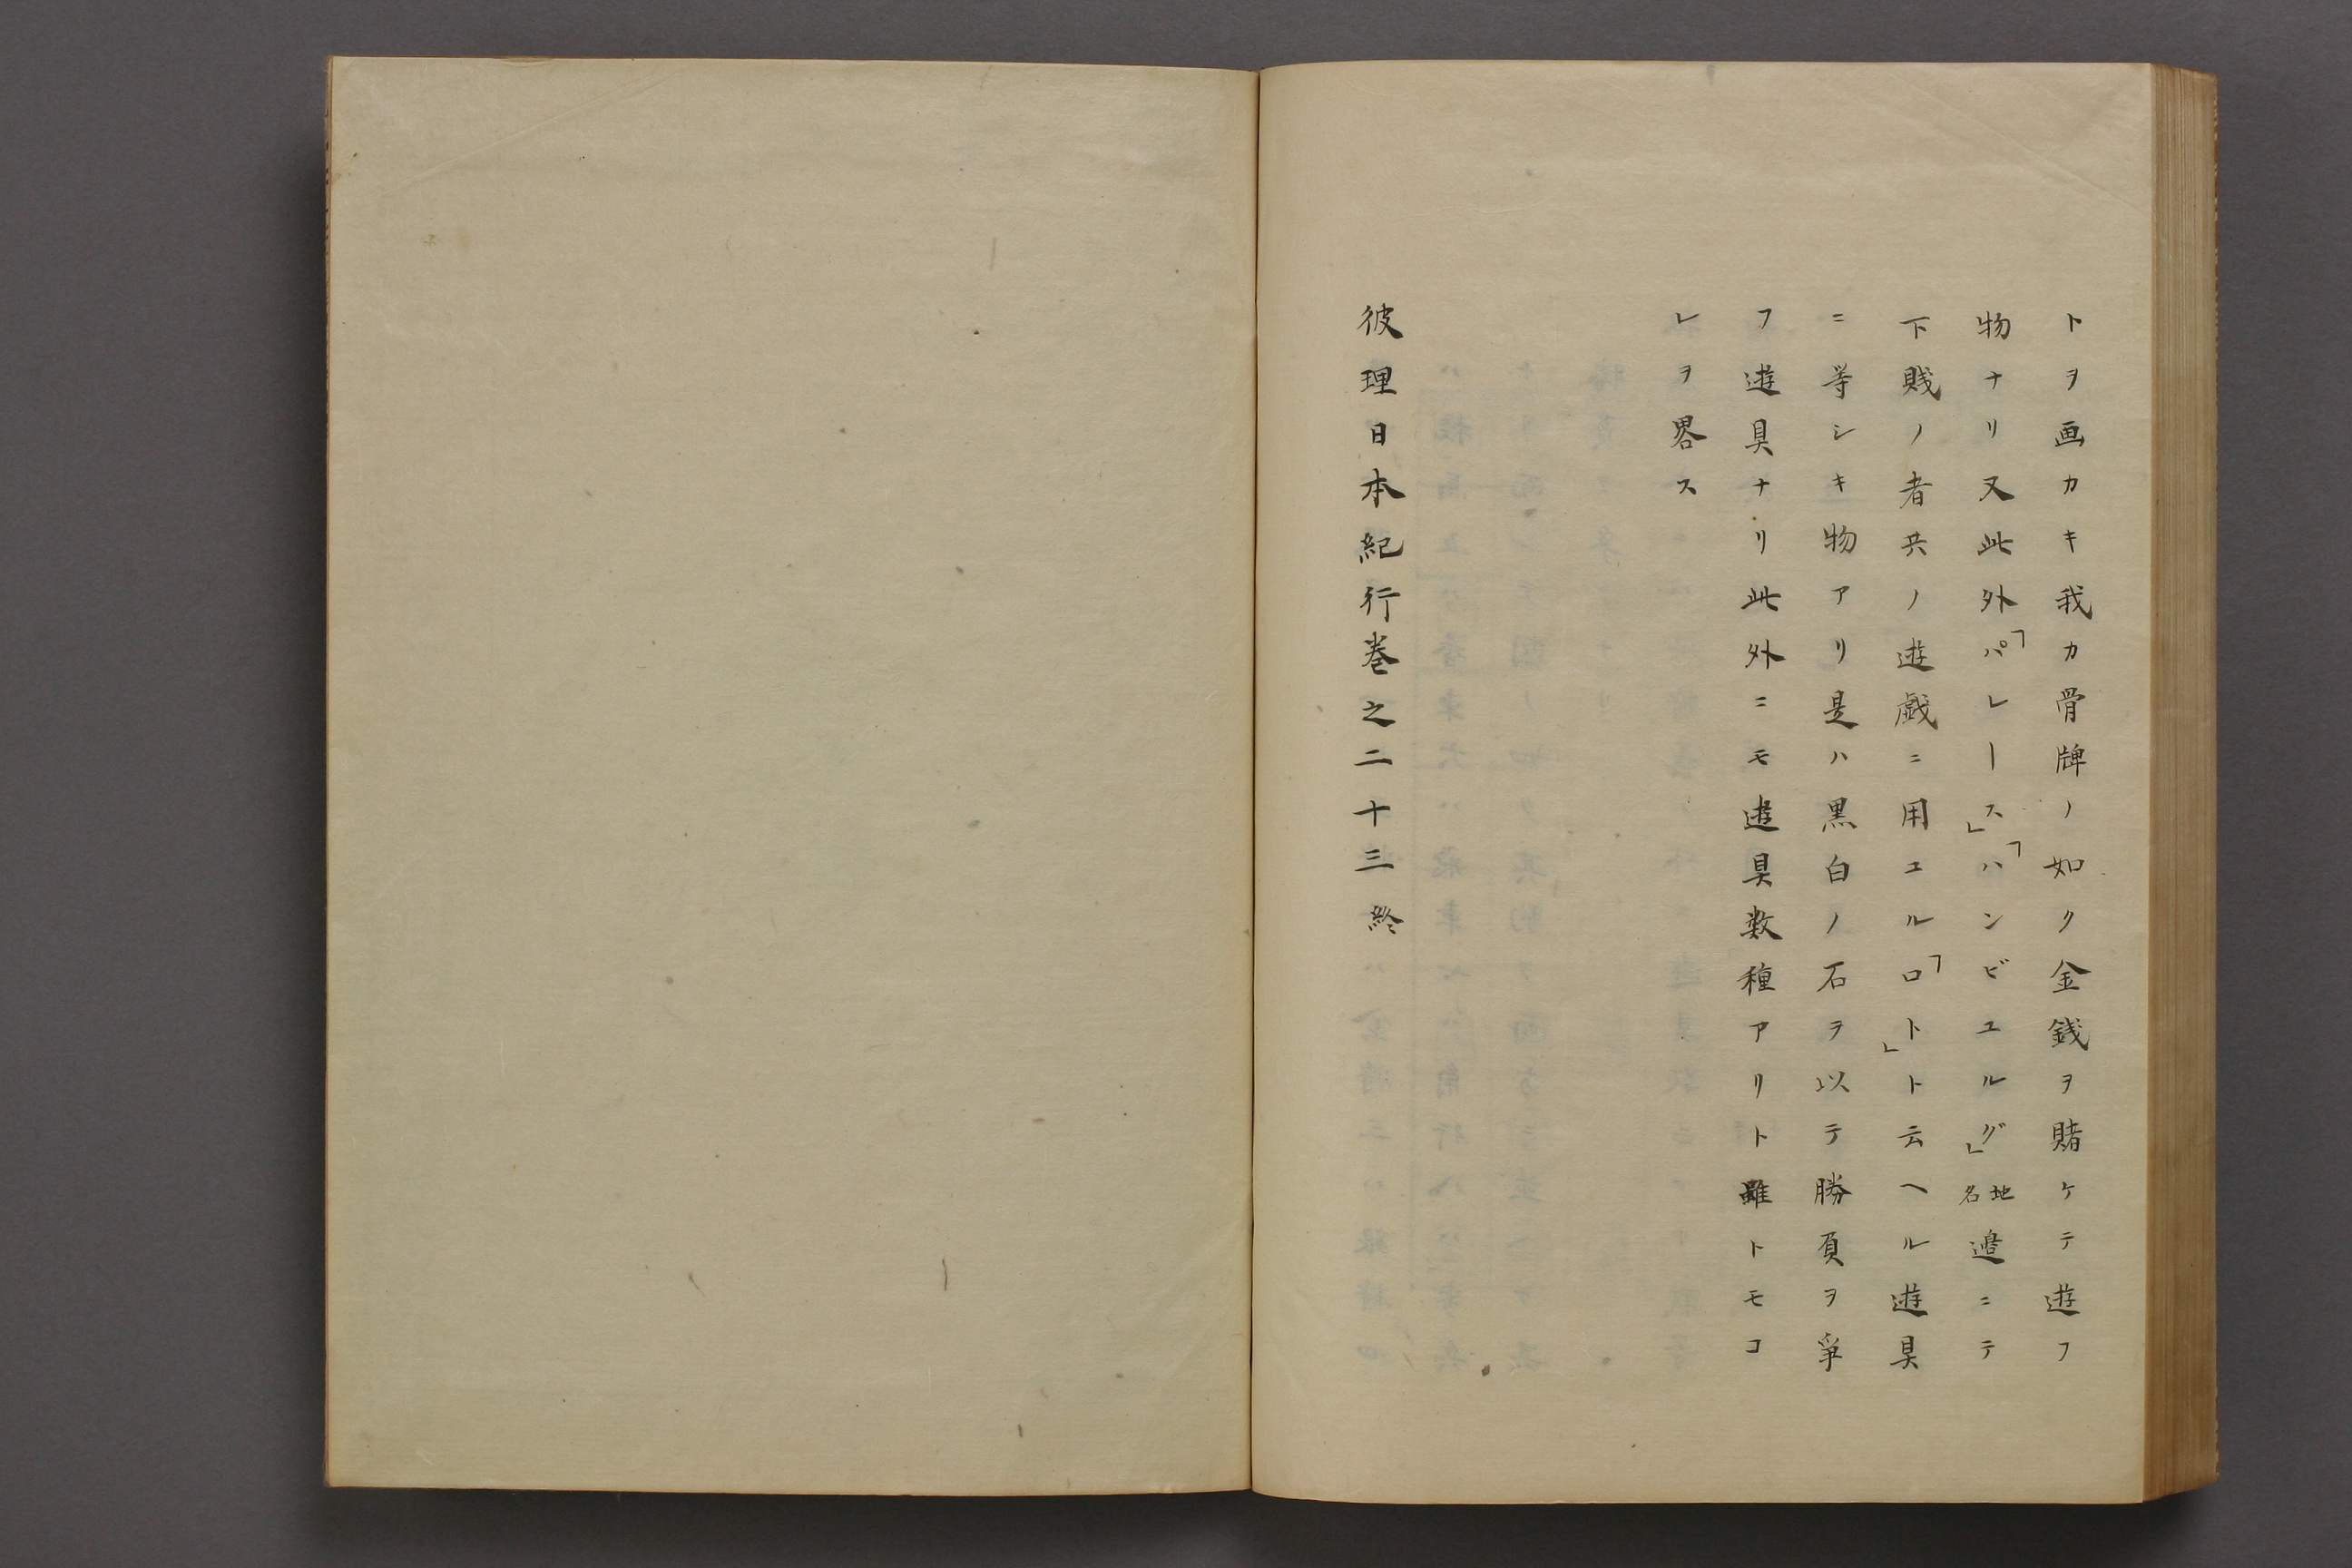 トヲ画カキ我カ骨牌ノ如ク金銭ヲ賭ケテ遊フ
物ナリ又此外「パレース」「ハンビユルグ」地名邉ニテ
下賎ノ者共ノ遊戯ニ用ユル「ロト」ト云ヘル遊具
ニ等シキ物アリ是ハ黒白ノ石ヲ以テ勝負ヲ爭
フ遊具ナリ此外ニモ遊具数種アリト雖トモコ
レヲ畧ス
彼理日本紀行巻之二十三終